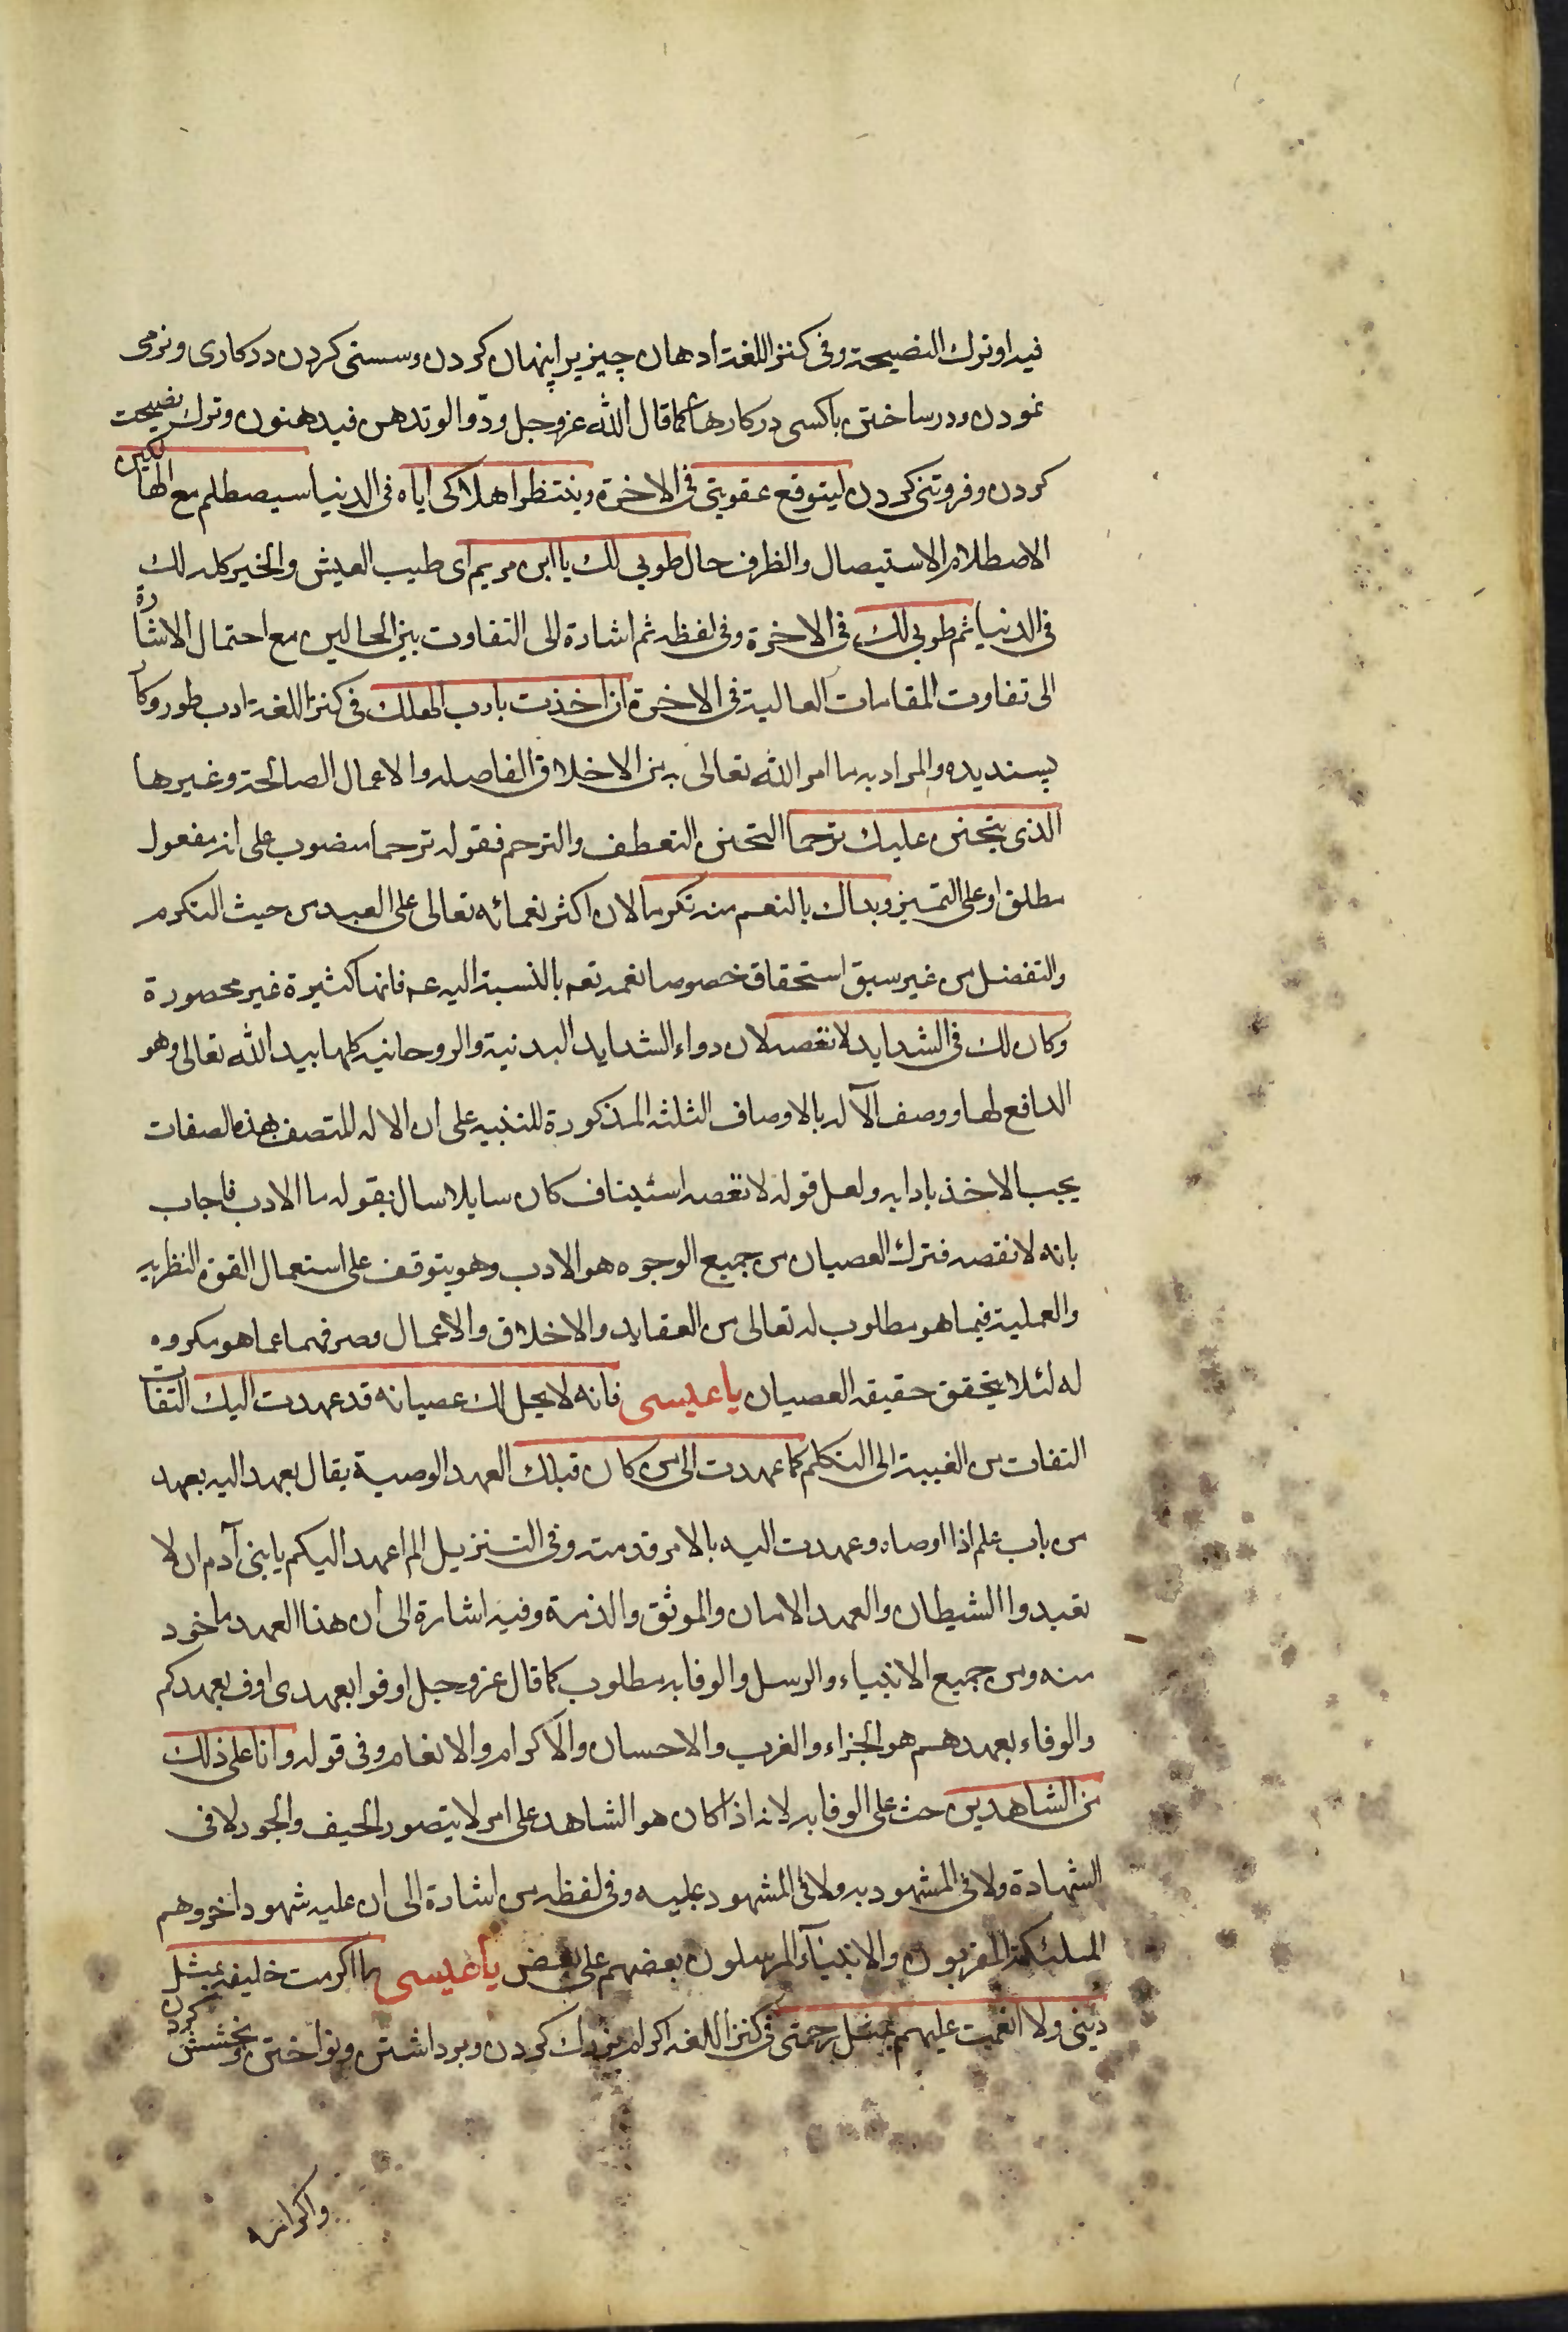 فيه او ترك النصيحة وفى كنز اللغة ادهان چيزيرا پنهان كردن وسستى كردن در كارى ونرمى
نمودن ودر ساختن باكسى در كارها كما قال الله عز وجل ودّوا لو تدهن فيدهنون وترك نصيحت
كردن وفروتنى كردن ليتوقع عقوبتى فى الاخرة وينتظر اهلاكى اياه فى الدنيا سيصطلم مع الهالكين
الاصطلام الاستيصال والظرف حال طوبى لك يا ابن مريم اى طيب العيش والخير كله لك
فى الدنيا ثم طوبى لك فى الاخرة وفى لفظه ثم اشارة الى التفاوت بين الحالين مع احتمال الاشارة
الى تفاوت المقامات العالية فى الاخرة ان اخذت بادب الهك فى كنز اللغة ادب طور وكار
پسنديده والمراد به ما امر الله تعالى به من الاخلاق الفاصله والاعمال الصالحة وغيرها
الذى يتحنن عليك ترحما التحنن التعطف والترحم فقوله ترحما منصوب على انه مفعول
مطلق او على التميز وبداك بالنعم منه تكرما لان اكثر نعمائه تعالى على العبد من حيث التكرم
والتفضل من غير سبق استحقاق خصوصا نعمه تعه بالنسبة اليه عه فانها كثيرة غير محصورة
وكان لك فى الشدايد لا تعصه لان دواء الشدايد البدنية والروحانيه كلها بيد الله تعالى وهو
الدافع لها ووصف الآله بالاوصاف الثلثه المذكورة للتنبيه على ان الاله المتصف بهذه الصفات
يجب الاخذ بادابه ولعل قوله لا تعصه استيناف كان سايلا سال بقوله ما الادب فاجاب
بانه لا تعصه فترك العصيان من جميع الوجوه هو الادب وهو يتوقف على استعمال القوة النظريه
والعملية فيما هو مطلوب له تعالى من العقايد والاخلاق والاعمال وصرفهما عما هو مكروه
له لئلا يتحقق حقيقه العصيان يا عيسى فانه لا يحل لك عصيانه قد عهدت اليك التفات
التفات من الغيبة الى التكلم كما عهدت الى من كان قبلك العهد الوصية يقال عهد اليه يعهد
من باب علم اذا اوصاه وعهدت اليه بالامر قدمته وفى التنزيل الم اعهد اليكم يا بنى آدم ان لا
تعبدوا الشيطان والعهد الامان والموثق والذمة وفيه اشارة الى ان هذا العهد ماخود
منه ومن جميع الانبياء والرسل والوفا به مطلوب كما قال عز وجل اوفوا بعهدى اوف بعهدكم
والوفاء بعهدهم هو الجزاء والقرب والاحسان والاكرام والانعام وفى قوله وانا على ذلك
من الشاهدين حث على الوفا به لانه اذا كان هو الشاهد على امر لا يتصور الحيف والجور لا فى
الشهادة ولا فى المشهود به ولا فى المشهود عليه وفى لفظه من اشارة الى ان عليه شهود اخر وهم
الملئكة المقربون والانبيآء المرسلون بعضهم على بعض يا عيسى ما اكرمت خليقه بمثل
دينى ولا انعمت عليهم بمثل رحمتى فى كنز اللغه اكرام بزرك كردن وبرداشتن ونواختن وبخشش كردن
واكرامه